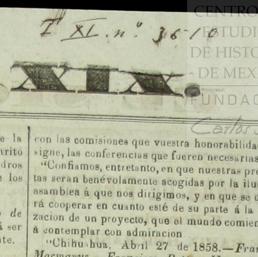 T XI. n.º 3610
CENTRO
ESTUDI
DE HISTO
- DE MEX
FUNDAC
Carlos S
XIX.
e la
critó
edros
e los
o de
á ser
nte.
con las comisiones que vuestra honorabilida
signe, las conferencias que fueren necesarias
"Confiamos, entretanto, en que nuestras pre
tas serán benévolamente acogidas por la ilu
asamblea á que nos dirigimos, y en que se d
rá cooperar en cuanto esté de su parte á la
zacion de un proyecto, que el mundo comien
á contemplar con admiracion
"Chihuahua, Abril 27 de 1858.—Fran